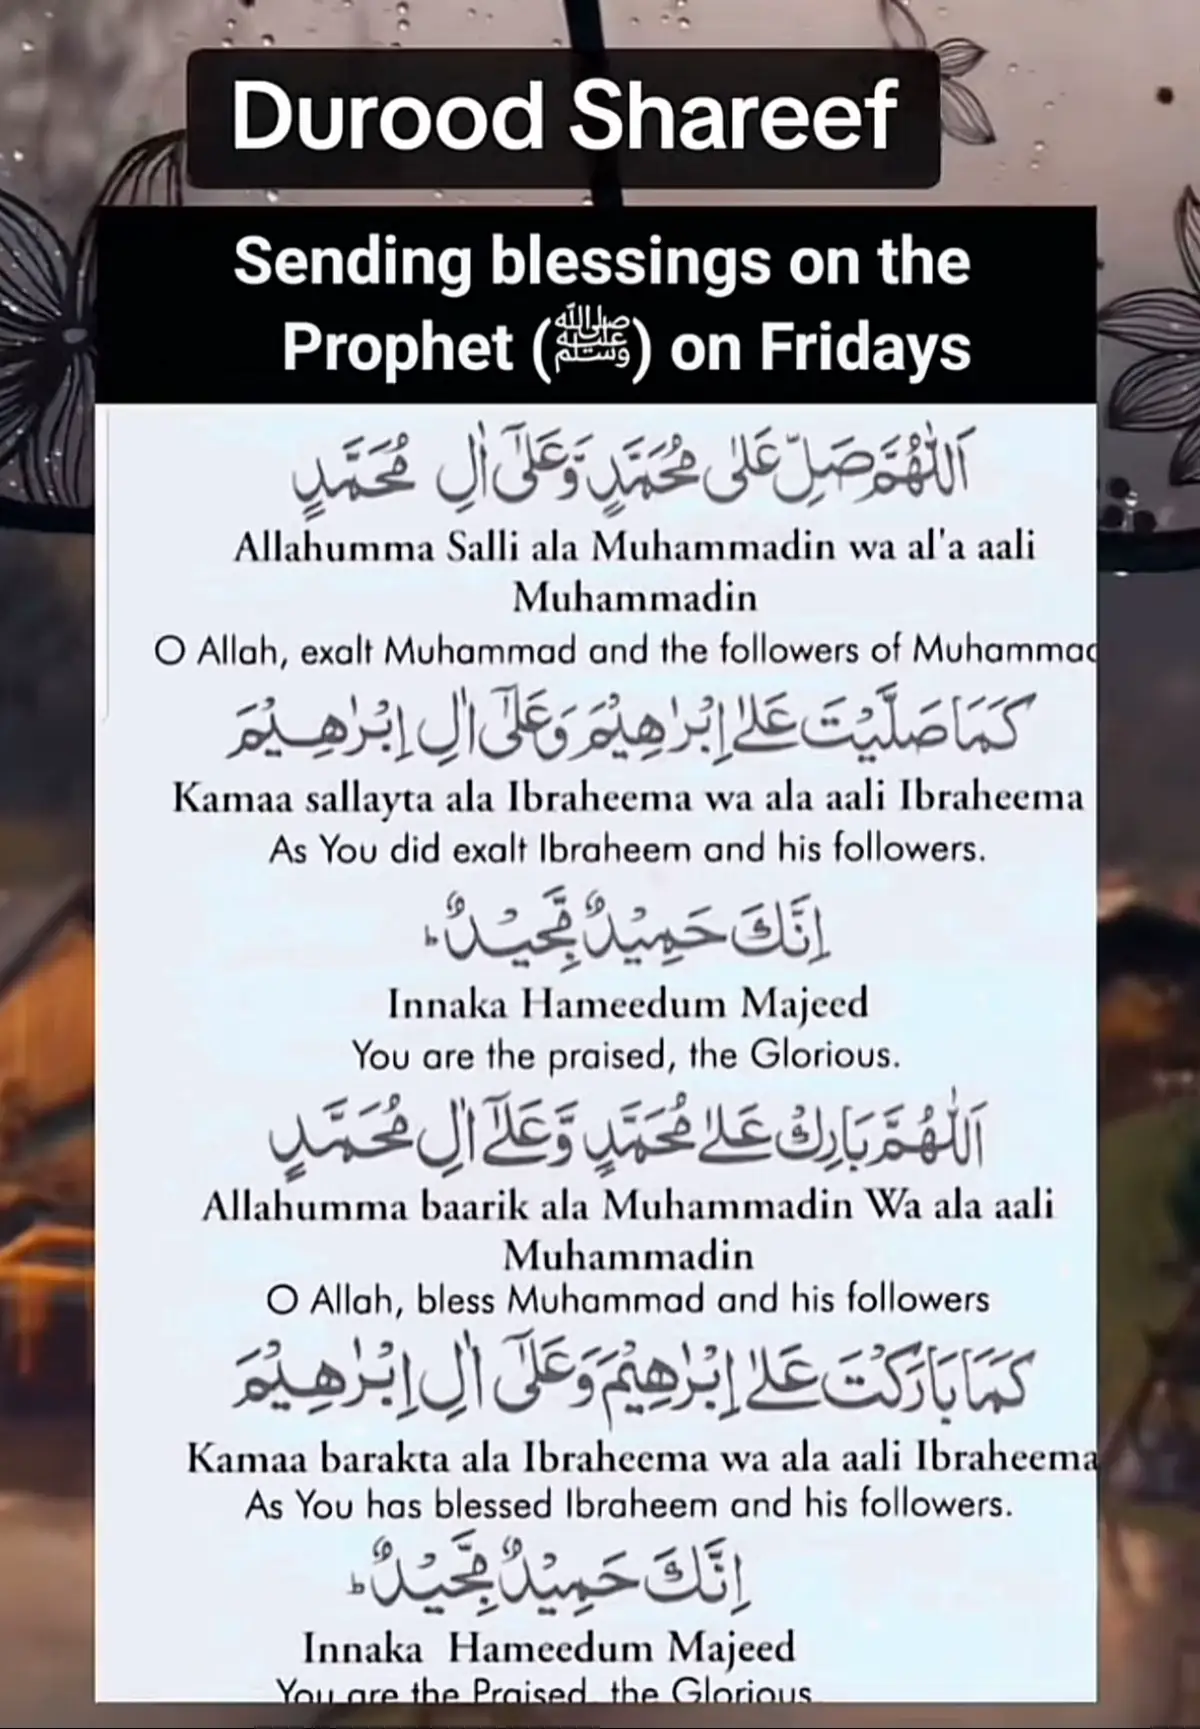 Durood Shareef
Sending blessings on the
Prophet (ﷺ) on Fridays
اَللّٰهُمَّ صَلِّ عَلٰى مُحَمَّدٍ وَّعَلٰٓى اٰلِ مُحَمَّدٍ
Allahumma Salli ala Muhammadin wa al'a aali
Muhammadin
O Allah, exalt Muhammad and the followers of Muhammad
كَمَا صَلَّيْتَ عَلٰٓى اِبْرٰهِيْمَ وَعَلٰٓى اٰلِ اِبْرٰهِيْمَ
Kamaa sallayta ala Ibraheema wa ala aali Ibraheema
As You did exalt Ibraheem and his followers.
اِنَّكَ حَمِيْدٌ مَّجِيْدٌ ؕ
Innaka Hameedum Majeed
You are the praised, the Glorious.
اَللّٰهُمَّ بَارِكْ عَلٰى مُحَمَّدٍ وَّعَلٰٓى اٰلِ مُحَمَّدٍ
Allahumma baarik ala Muhammadin Wa ala aali
Muhammadin
O Allah, bless Muhammad and his followers
كَمَا بَارَكْتَ عَلٰٓى اِبْرٰهِيْمَ وَعَلٰٓى اٰلِ اِبْرٰهِيْمَ
Kamaa barakta ala Ibraheema wa ala aali Ibraheema
As You has blessed Ibraheem and his followers.
اِنَّكَ حَمِيْدٌ مَّجِيْدٌ ؕ
Innaka Hameedum Majeed
You are the Praised, the Glorious